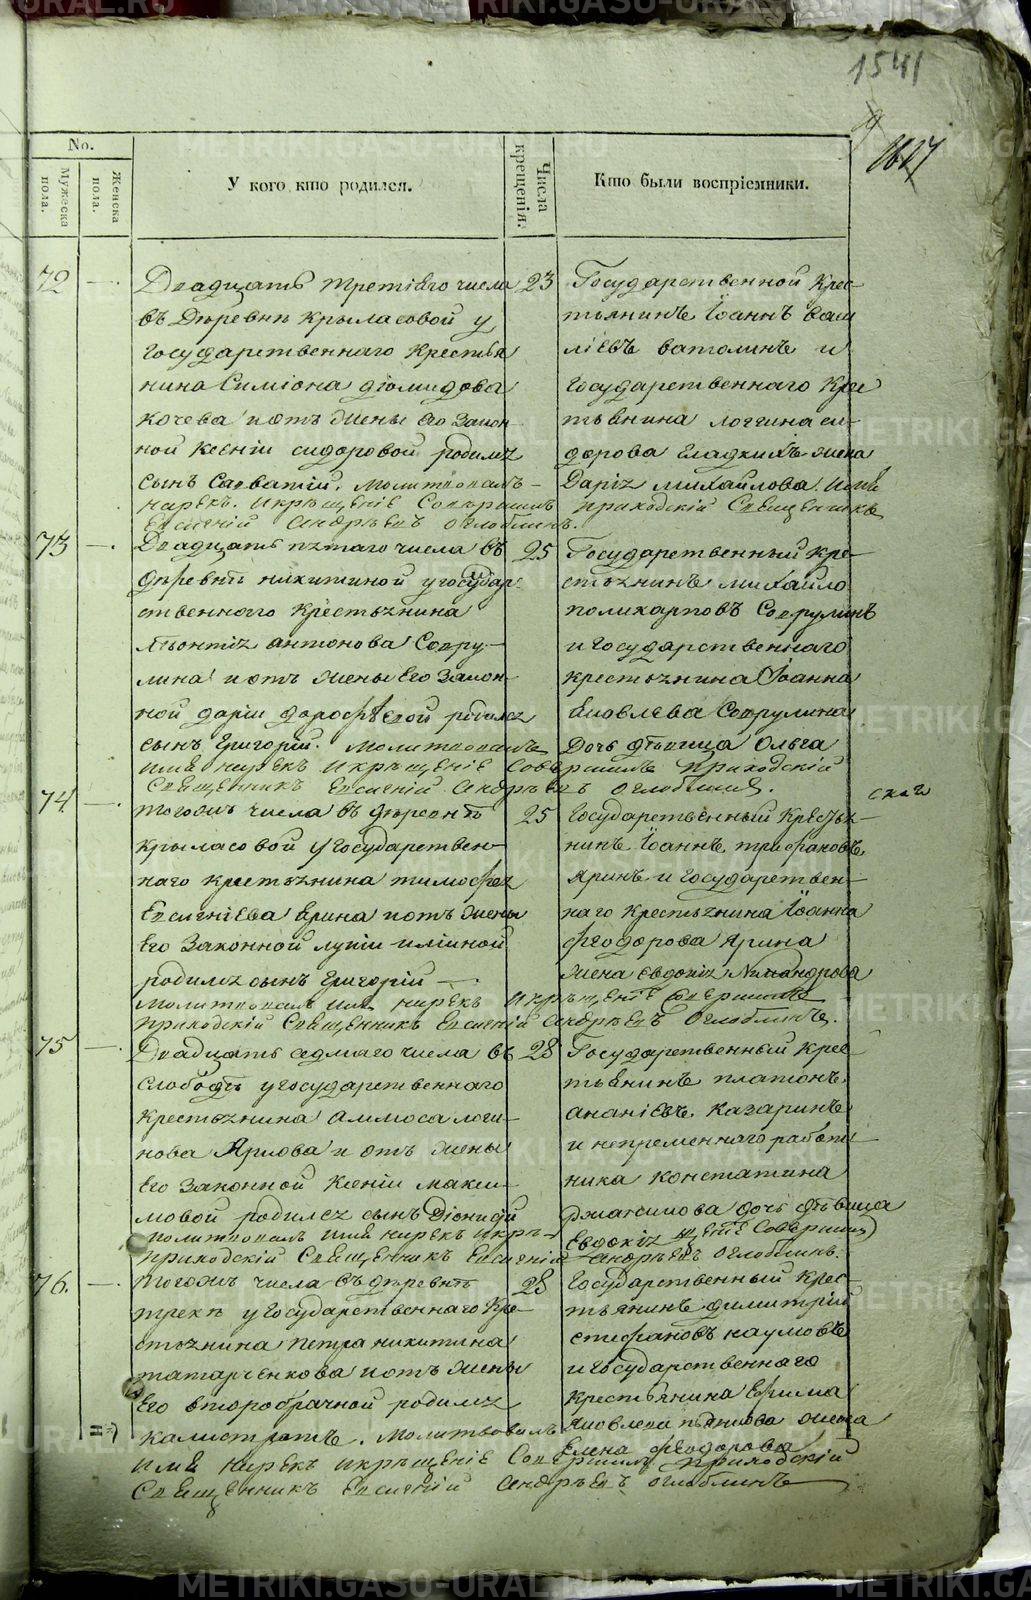 1541
No.
Мужеска пола.
Женска пола.
У кого кто родился.
Числа крещенія.
Кто были воспріемники.
72 —
Двадцать третіего числа
въ Деревнѣ Крыласовой у
государственнаго Крестья
нина Симіона діомидова
Кочева и отъ жены его Закон
ной Ксеніи сидоровой родился
сынъ Савватій. Молитвовалъ
нарекъ. И крещеніе Совершилъ Приходскій Священникъ
Евсигній Андрѣевъ Оглоблинъ.
23
Государственной Крес
тьянинъ Іоаннъ Васи
ліевъ ватолинъ и
Государственнаго Крес
тьянина логгина си
дорова Гладкихъ жена
Дарія михайлова Имя
73 —
Двадцать пятаго числа въ
деревнѣ никитиной у государ
ственнаго Крестьянина
Леонтія антонова Совру
лина и отъ жены Его Закон
ной даріи дорофѣевой родился
сынъ Григорій. Молитвовалъ
имя нарекъ И крещеніе Совершилъ Приходскій
Священникъ Евсигній Андрѣевъ Оглоблинъ.
25
Государственный Кре
стьянинъ михайло
поликарповъ Соврулинъ
и государственнаго
крестьянина Іоанна
Яковлева Соврулина
Дочь дѣвица Ольга
74 —
тогожъ числа въ деревнѣ
Крыласовой у государствен
наго крестьянина тимофея
Евсигніева Ярина и отъ жены
Его Законной лукіи илііной
родился сынъ Григорій —
молитвовалъ имя нарекъ И крещеніе Совершилъ
приходскій Священникъ Евсигній Андрѣевъ Оглоблинъ.
25
Государственный Кресть
нинъ Іоаннъ трифановъ
Яринъ и государствен
наго крестьянина Іоанна
Феодорова Ярина
жена Евдокія Никандрова
75 —
Двадцать седмаго числа въ
Слободѣ у государственнаго
крестьянина Аммоса логи
нова Ярлова и отъ жены
Его Законной Ксеніи макси
мовой родился сынъ Діонисій
молитвовалъ имя нарекъ и кре
приходскій Священникъ Евсигній Андрѣевъ Оглоблинъ.
28
Государственный Крес
тьянинъ платонъ
ананіевъ Казаринъ
и непременнаго работ
ника константина
дочь дѣвица
Евдокія щеніе Совершилъ
76. —
тогожъ числа въ деревнѣ
трекѣ у государственнаго Кре
стьянина петра никитина
татарченкова и отъ жены
Его второбрачной родился
калистратъ. Молитвовалъ
имя нарекъ и крещеніе Совершилъ приходскій
Священникъ Евсигній Андрѣевъ Оглоблинъ
28
Государственный Крес
тьянинъ димитрій
стефановъ наумовъ
и государственнаго
крестьянина Ефима
Яковлева пьянкова жена
Елена феодорова
METRIKI.GASO-URAL.RU